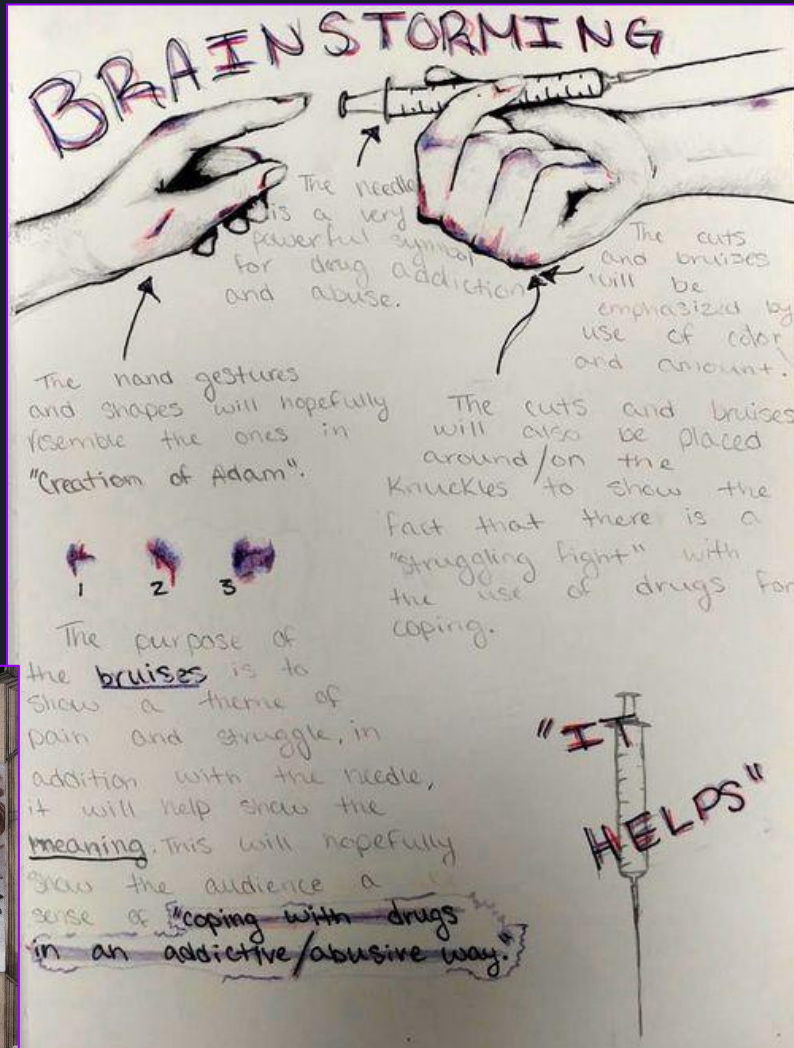 BRAINSTORMING
The needle
is a very
powerful symbol
for drug addiction
and abuse.
The cuts
and bruises
will be
emphasized by
use of color
and amount!
The hand gestures
and shapes will hopefully
resemble the ones in
"Creation of Adam".
The cuts and bruises
will also be placed
around/on the
knuckles to show the
fact that there is a
"struggling fight" with
the use of drugs for
coping.
1 2 3
The purpose of
the bruises is to
show a theme of
pain and struggle, in
addition with the needle,
it will help show the
meaning. This will hopefully
show the audience a
sense of "coping with drugs
in an addictive/abusive way."
"IT
HELPS"